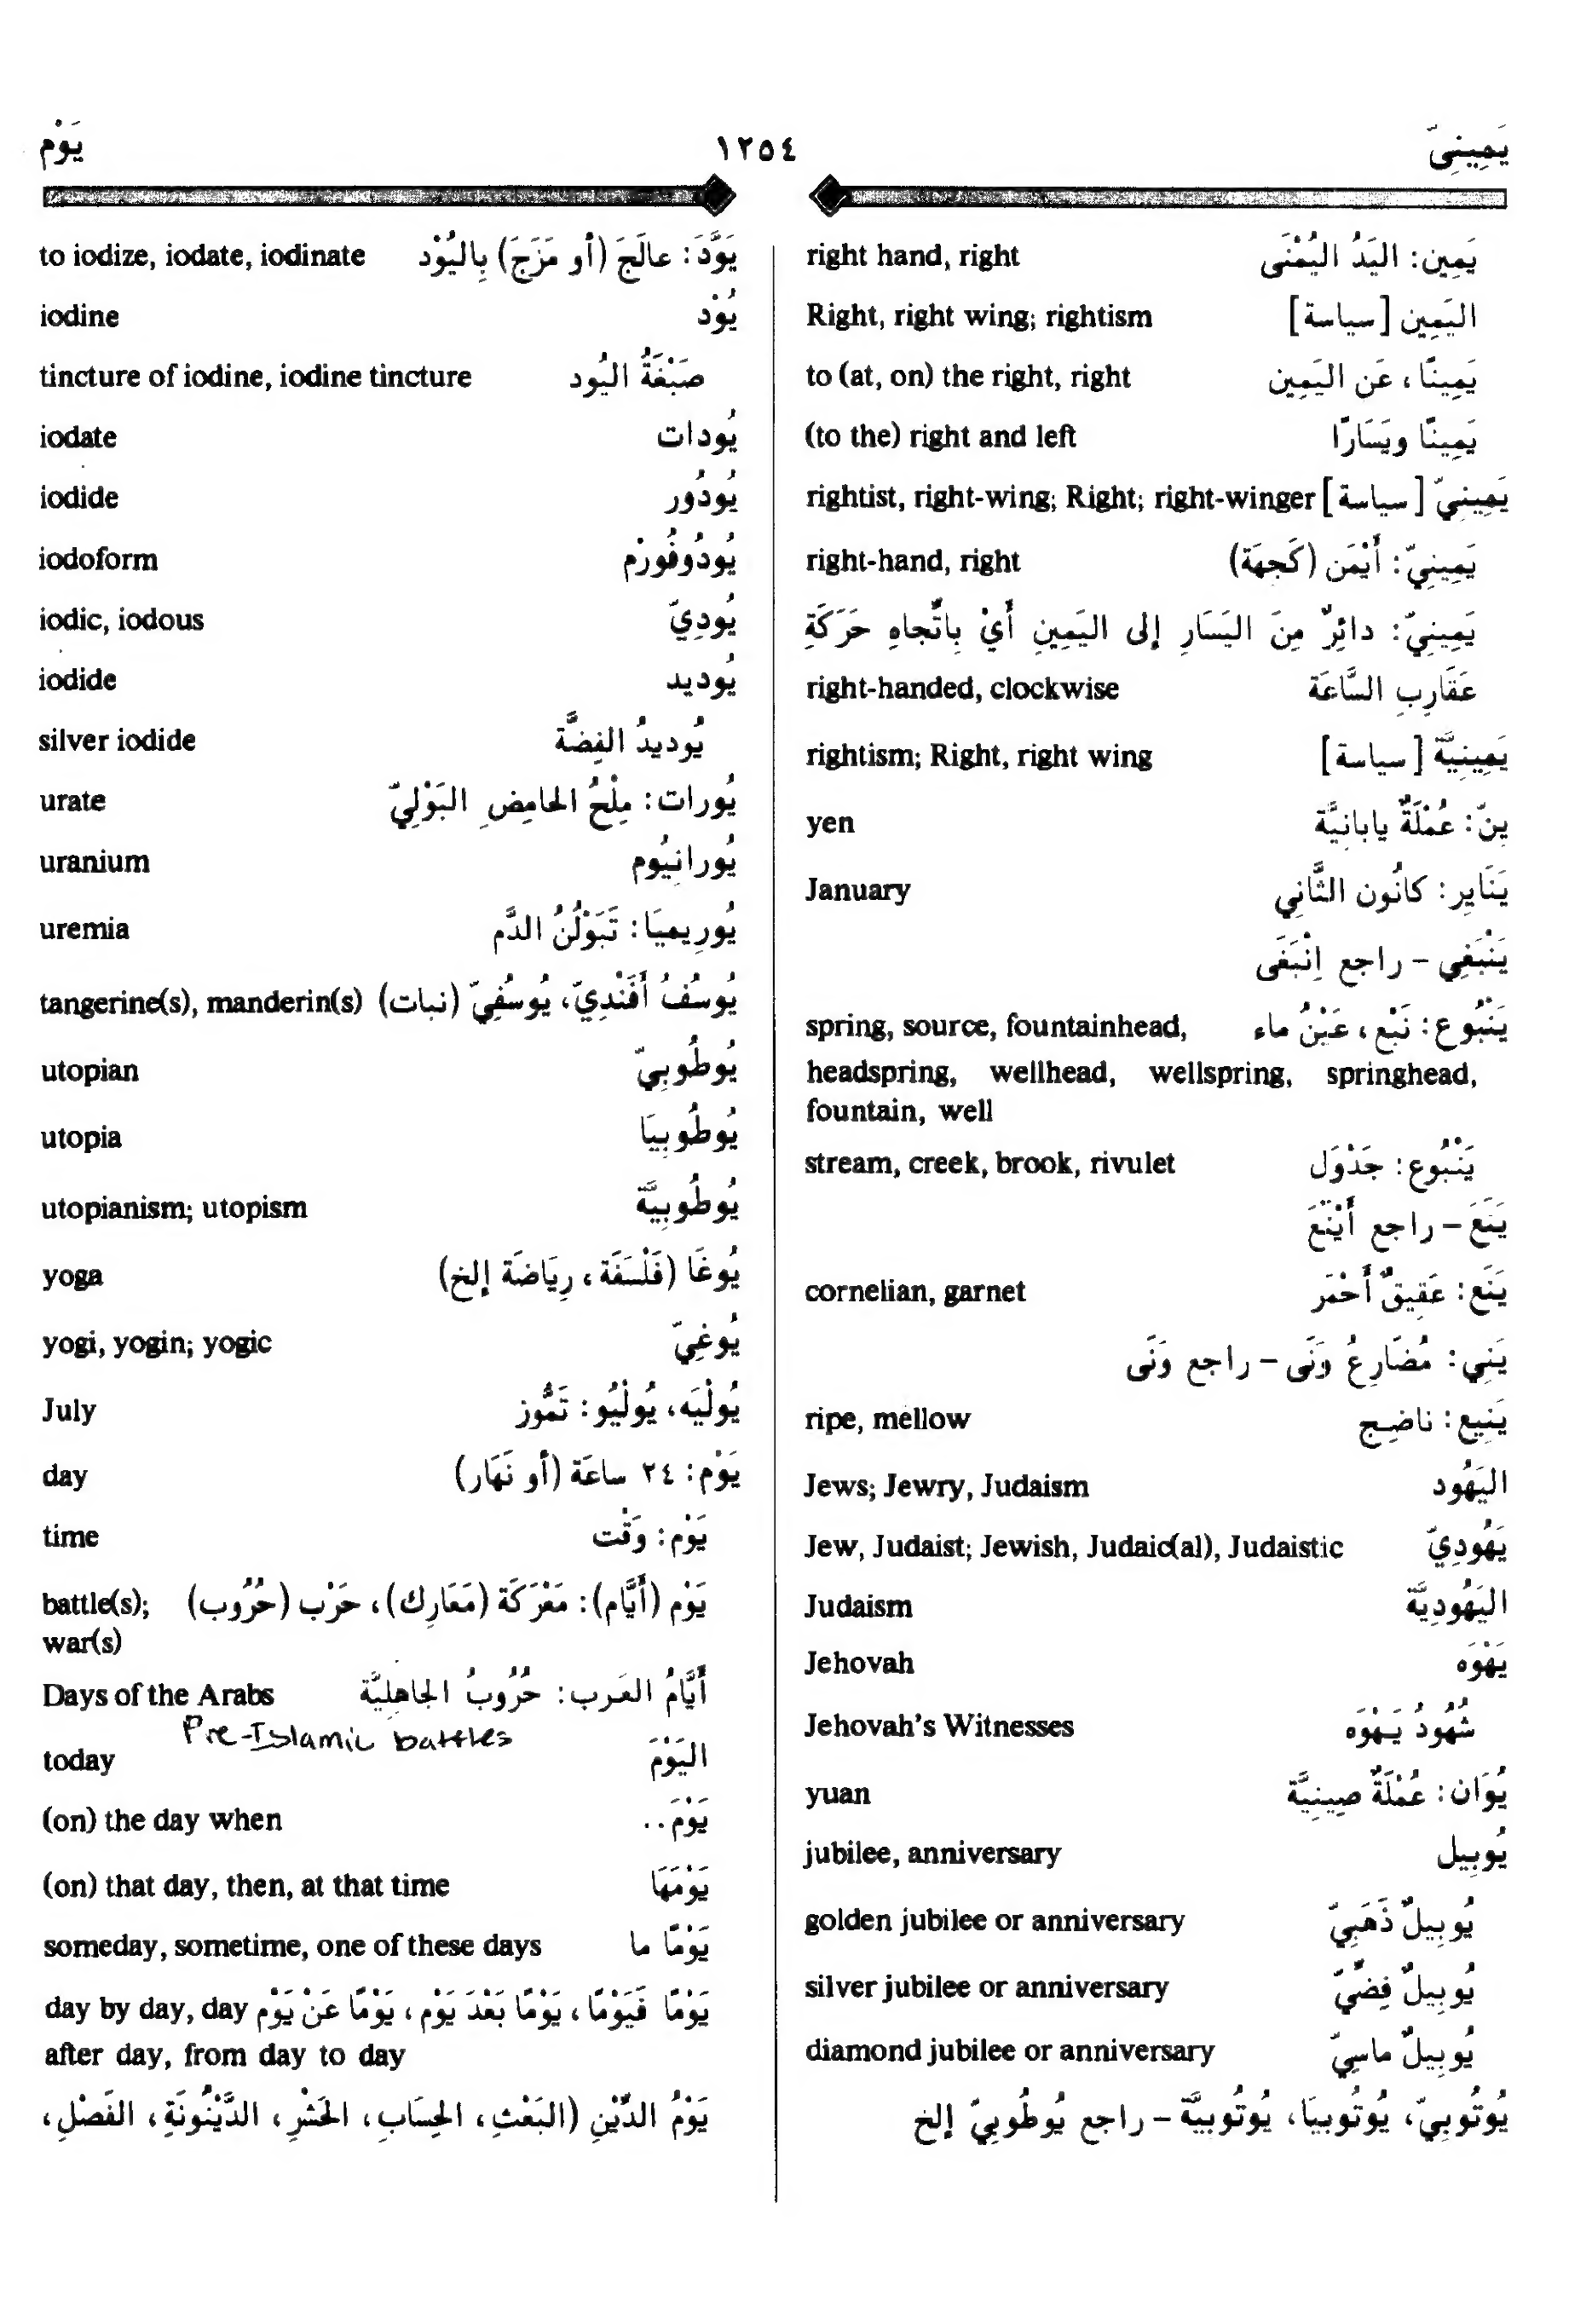 يَمِينِيّ
١٢٥٤
يَوْم
يَمِين: اليَدُ اليُمْنَى right hand, right
اليَمِين [سياسة] Right, right wing; rightism
يَمِينًا، عَن اليَمِين to (at, on) the right, right
يَمِينًا ويَسَارًا (to the) right and left
يَمِينِيّ [سياسة] rightist, right-wing; Right; right-winger
يَمِينِيّ: أَيْمَن (كَجِهَة) right-hand, right
يَمِينِيّ: دائِرٌ مِنَ اليَسَارِ إلى اليَمِينِ أَيْ بِاتِّجاهِ حَرَكَةِ
عَقَارِبِ السَّاعَة right-handed, clockwise
يَمِينِيَّة [سياسة] rightism; Right, right wing
ينّ: عُمْلَةٌ يابانِيَّة yen
يَنَاير: كانُون الثَّانِي January
يَنْبَغِي - راجع اِنْبَغَى
يَنْبُوع: نَبْع، عَيْنُ ماء spring, source, fountainhead,
headspring, wellhead, wellspring, springhead,
fountain, well
يَنْبُوع: جَدْوَل stream, creek, brook, rivulet
يَنَعَ - راجع أَيْنَعَ
يَنَع: عَقِيقٌ أَحْمَر cornelian, garnet
يَنِي: مُضَارِعُ وَنَى - راجع وَنَى
يَنِيع: ناضِج ripe, mellow
اليَهُود Jews; Jewry, Judaism
يَهُودِيّ Jew, Judaist; Jewish, Judaic(al), Judaistic
اليَهُودِيَّة Judaism
يَهْوَه Jehovah
شُهُودُ يَهْوَه Jehovah's Witnesses
يُوَان: عُمْلَةٌ صِينِيَّة yuan
يُوبِيل jubilee, anniversary
يُوبِيلٌ ذَهَبِيّ golden jubilee or anniversary
يُوبِيلٌ فِضِّيّ silver jubilee or anniversary
يُوبِيلٌ ماسِيّ diamond jubilee or anniversary
يُوتُوبِيّ، يُوتُوبيَا، يُوتُوبِيَّة - راجع يُوطُوبِيّ إلخ
يَوَّدَ: عالَجَ (أو مَزَجَ) بِاليُوْد to iodize, iodate, iodinate
يُوْد iodine
صَبْغَةُ اليُود tincture of iodine, iodine tincture
يُودات iodate
يُودُور iodide
يُودُوفُورْم iodoform
يُودِيّ iodic, iodous
يُوديد iodide
يُوديدُ الفِضَّة silver iodide
يُورات: مِلْحُ الحامِضِ البَوْلِيّ urate
يُورانِيُوم uranium
يُورِيميَا: تَبَوْلُنُ الدَّم uremia
يُوسُفُ أَفَنْدِيّ، يُوسُفِيّ (نبات) tangerine(s), manderin(s)
يُوطُوبِيّ utopian
يُوطُوبيَا utopia
يُوطُوبِيَّة utopianism; utopism
يُوغَا (فَلْسَفَة، رِيَاضَة إلخ) yoga
يُوغِيّ yogi, yogin; yogic
يُولْيَه، يُولْيُو: تَمُّوز July
يَوْم: ٢٤ ساعَة (أو نَهَار) day
يَوْم: وَقْت time
يَوْم (أَيَّام): مَعْرَكَة (مَعَارِك)، حَرْب (حُرُوب) battle(s);
war(s)
أَيَّامُ العَرب: حُرُوبُ الجاهِلِيَّة Days of the Arabs
Pre-Islamic battles
اليَوْمَ today
يَوْمَ.. (on) the day when
يَوْمَهَا (on) that day, then, at that time
يَوْمًا ما someday, sometime, one of these days
يَوْمًا فَيَوْمًا، يَوْمًا بَعْدَ يَوْم، يَوْمًا عَنْ يَوْم day by day, day
after day, from day to day
يَوْمُ الدِّيْنِ (البَعْثِ، الحِسَابِ، الحَشْرِ، الدَّيْنُونَةِ، الفَصْلِ،